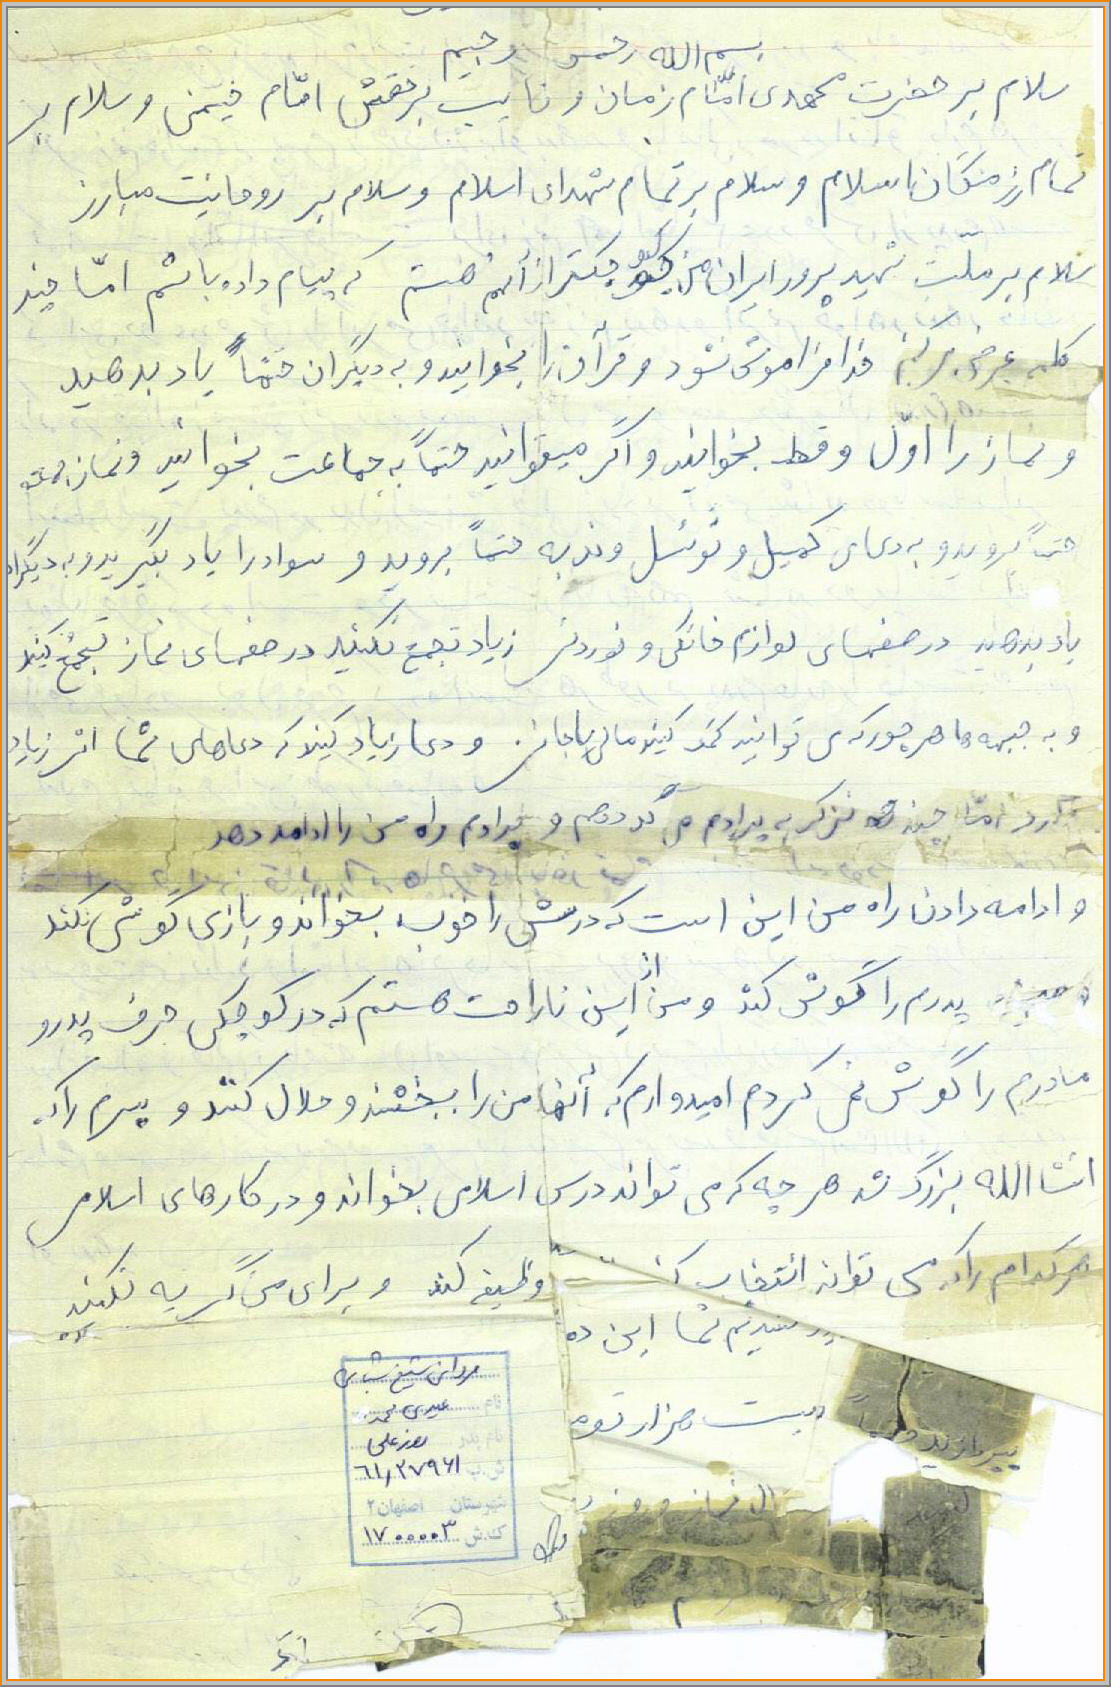 بسم الله رحمن رحیم
سلام بر حضرت مهدی امام زمان و نایب برحقش امام خمینی و سلام بر
تمام رزمندگان اسلام و سلام بر تمام شهدای اسلام و سلام بر روحانیت مبارز
سلام بر ملّت شهید پرور ایران من کوچکتر از آنم هستم که پیام داده باشم امّا چند
کلمه عرض می کنم خدا فراموش نشود و قرآن را بخوانید و به دیگران حتماً یاد بدهید
و نماز را اوّل وقط بخوانید و اگر میتوانید حتماً به جماعت بخوانید و نماز جمعه
حتماً بروید و به دعای کمیل و توسّل و ندبه حتماً بروید و سواد را یاد بگیرید و به دیگران
یاد بدهید در صفهای لوازم خانگی و خوردنی زیاد تجمع نکنید در صفهای نماز تجمّع کنید
و به جبهه ها هر جور که می توانید کمک کنید مالی یا جانی و دعا زیاد کنید که دعاهای شما اثر زیاد
دارد امّا چند تذکر به برادرم می دهم و برادرم راه من را ادامه دهد
و ادامه دادن راه من این است که درسش را خوب بخواند و بازی گوشی نکند
پدرم را گوش کند و من از این ناراحت هستم که در کوچکی حرف پدر و
مادرم را گوش نمی کردم امیدوارم که آنها من را ببخشند و حلال کنند و پسرم را که
انشاالله بزرگ شد هر چه که می تواند درس اسلامی بخواند و در کارهای اسلامی
هر کدام را که می تواند انتخاب کند وظیفه کند و برای من گریه نکنید
شما این ده
بیست هزار تومن
بپردازید
نام عیدی محمد
نام پدر روزعلی
ش.پ ٦١٫٢٧٩٦١
شهرستان اصفهان ٢
کد.ش ١٧٠٠٠٠٠٣